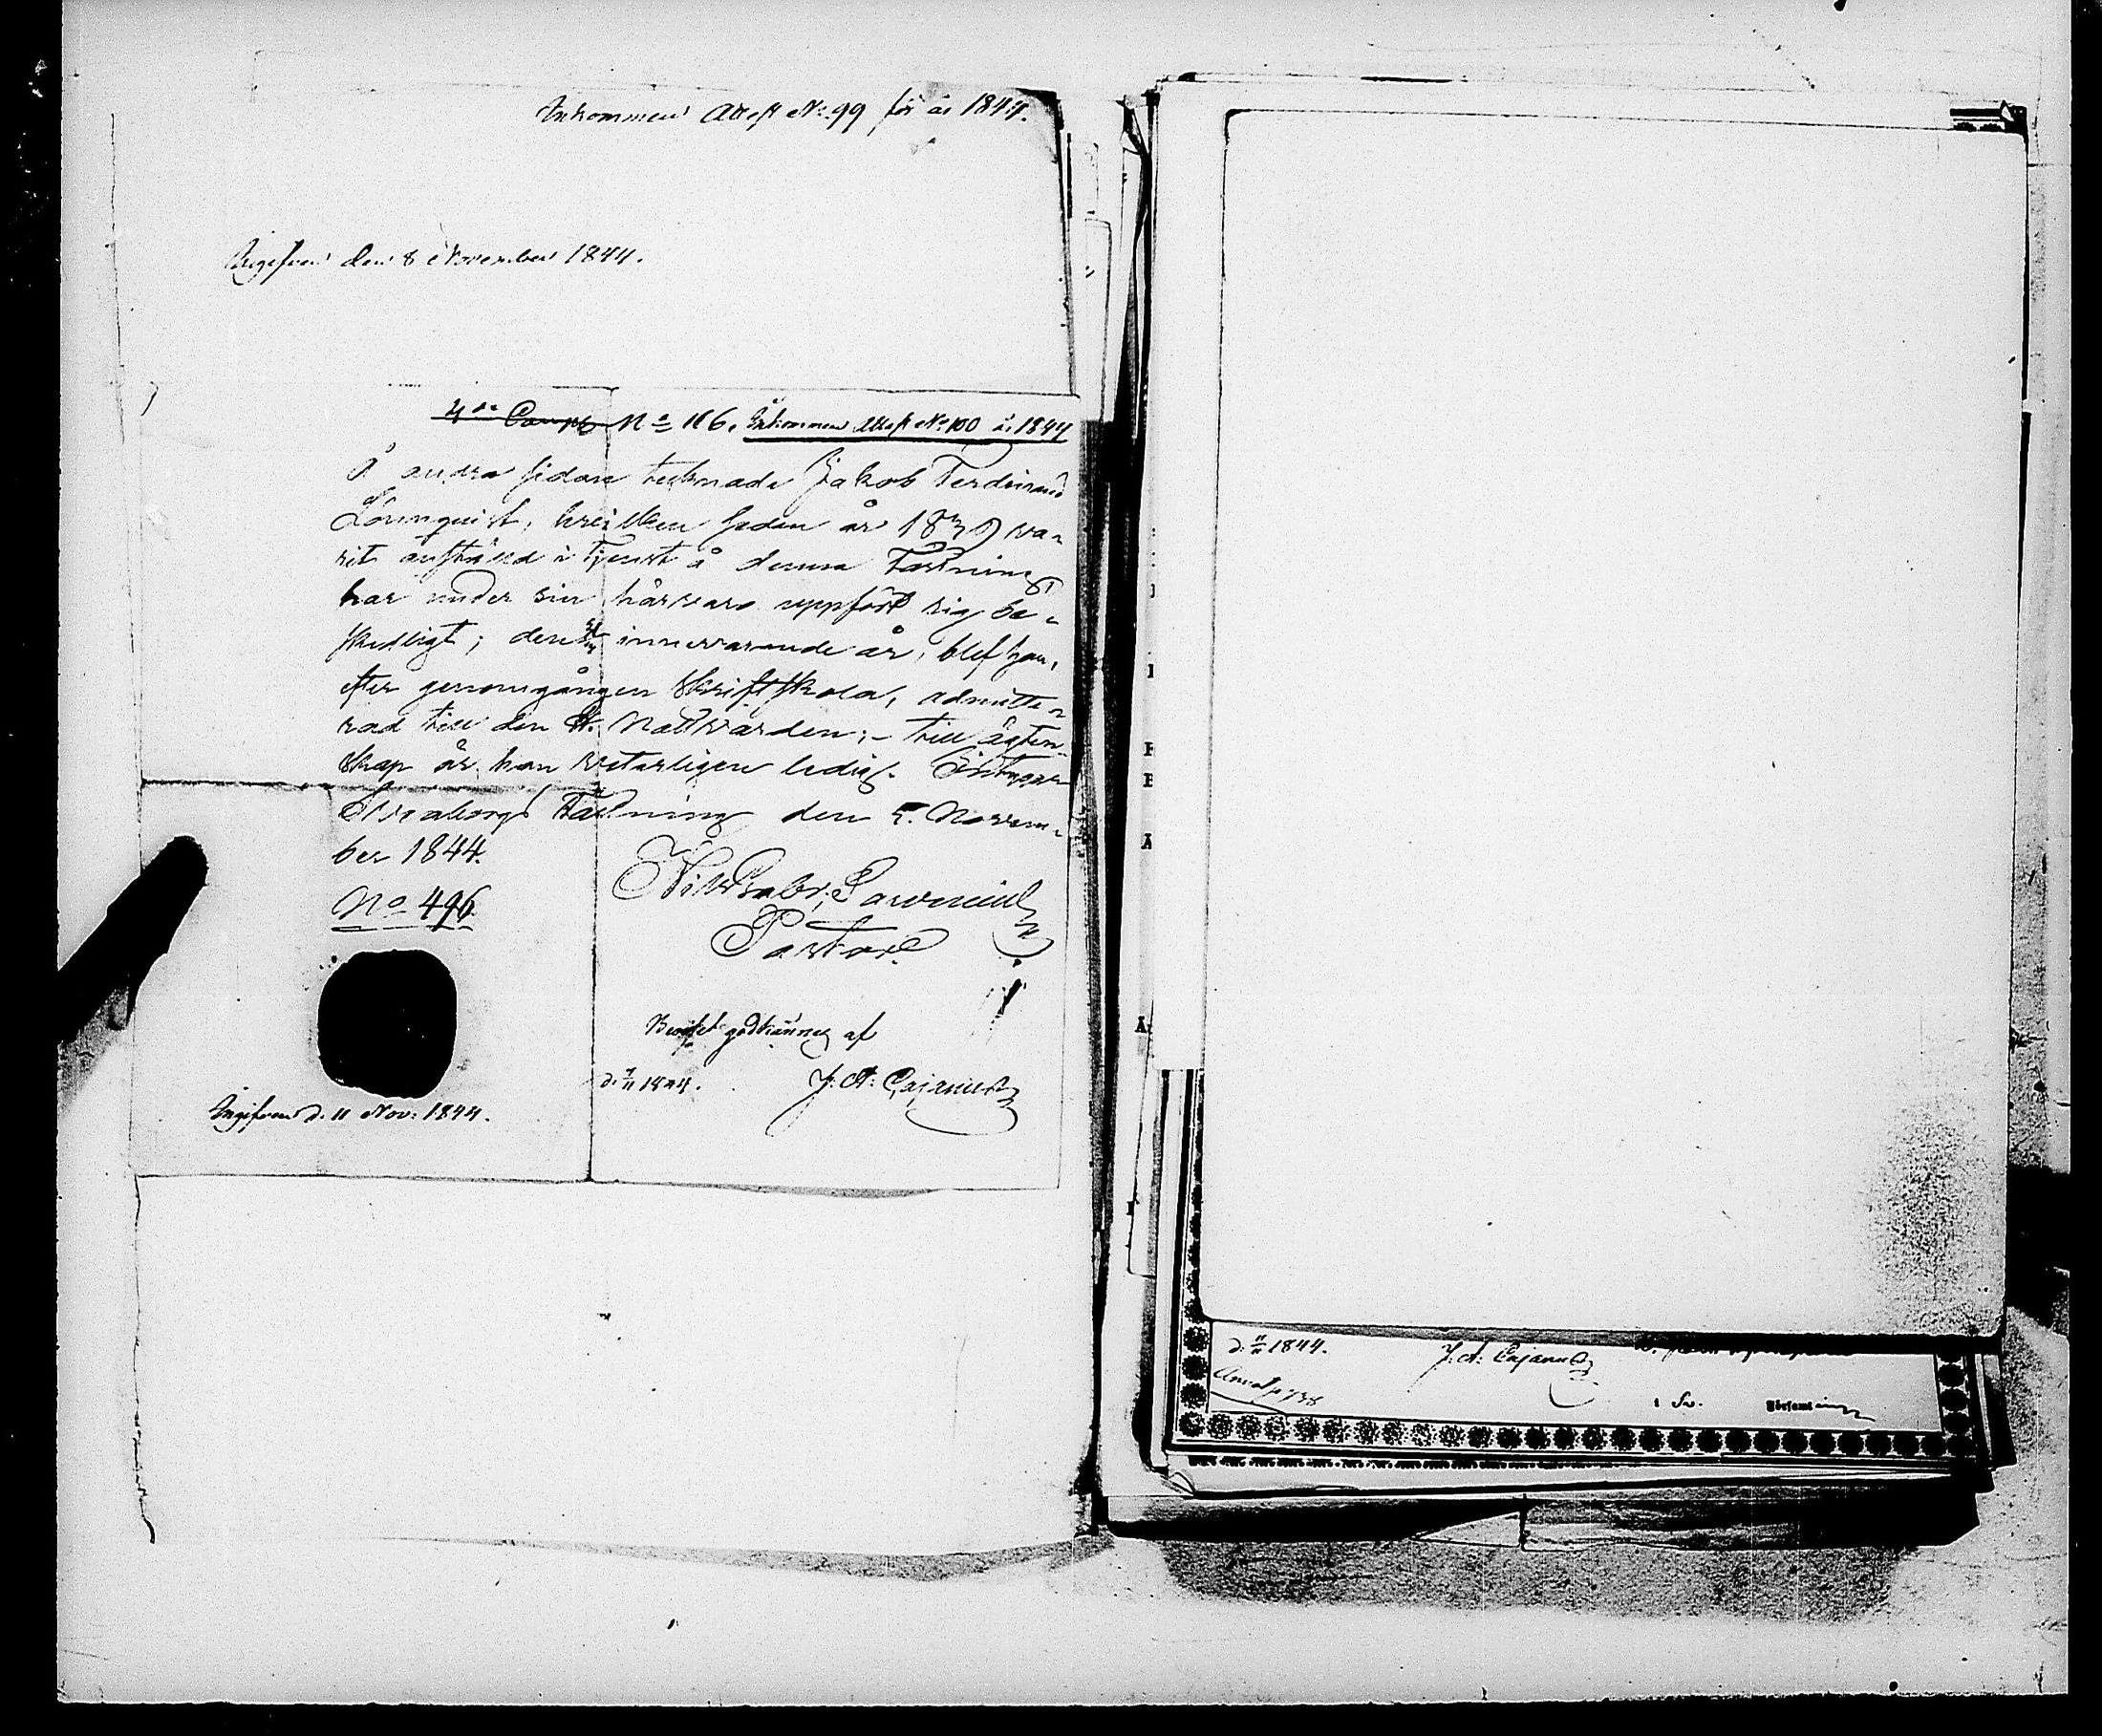 Inkommen Attest No 99 för år 1844.
Ingifven den 8 November 1844.
4de Comp No 116. Inkommen Attest No 100 år 1844
Å andra sidan tecknade Jakob Ferdinand
Lönnqvist, hvilken sedan år 1839 va-
rit anställd i tjenst å denna Fästning
har under sin härvaro uppfört sig be-
skedligt; den innevarande år, blef han,
efter genomgången Skriftskola, admitte-
rad till den H. Nattvarden; - till ägten-
skap är han veterligen ledig.
Sveaborgs Fästning den 5. Novem-
ber 1844.
No 496.
Pastor.
Beviset godkännes af
d. 7/11 1844. J: A: Cajanus
Ingifven d. 11 Nov: 1844.
d. 11/11 1844. J: A: Cajanus
i Sv. Församling